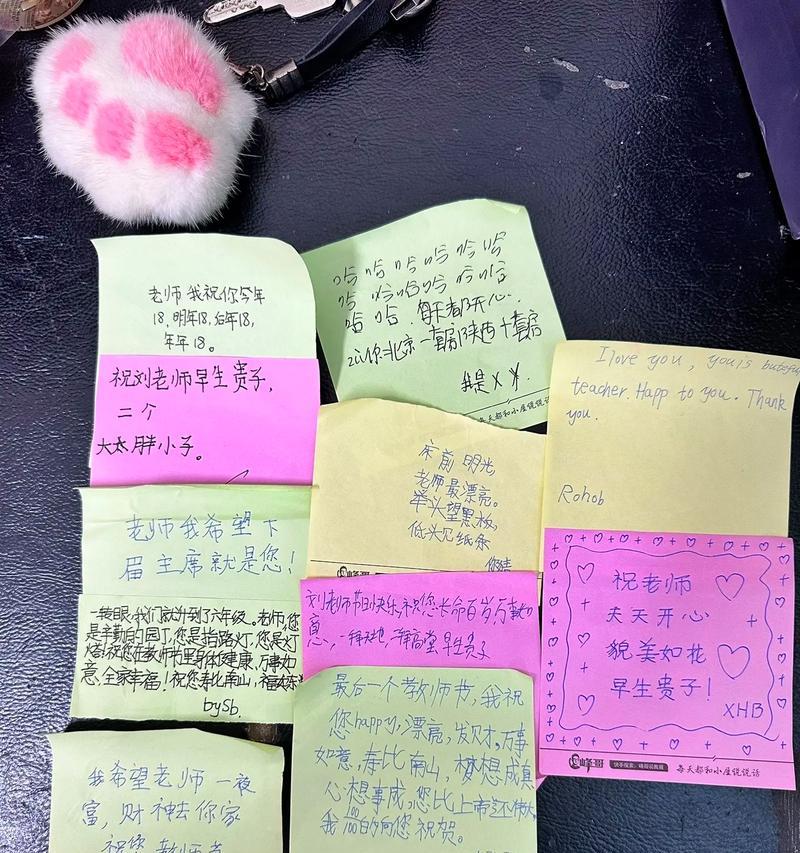 老师我祝你今年
18,明年18,后年18,
年年18。
祝刘老师早生贵子,
二个
大太胖小子。
老师我希望下
届主席就是您!
一转眼,我们就升到了六年级。老师,您
是辛勤园丁,您是指路灯,您是灯
祝您在教师节里身体健康,万事如
意、全家幸福!祝您寿比南山,福如东
bySb.
我希望老师一夜
富,财神去你家
祝您教师节
哈哈哈哈哈哈
哈哈哈哈哈哈
哈哈.每天都开心.
北京一套房陕西十套房
我是XX.
每天都和小崖说说话
床前明光,
老师最漂亮。
举头望黑板,
低头见纸条
峰哥
刘老师节日快乐,祝您长命百岁,万事如
意,一拜天地,二拜高堂,早生贵子
最后一个教师节,我祝
您happy,漂亮,发财,万事
如意,寿比南山,梦想成真
心想事成,您比上帝还伟大,
我100/100的向您祝贺。
I love you, you is
teacher. Happ to you. Thank
you.
Rohob
祝老师
天天开心
貌美如花
早生贵子!
XHB
峰哥 快手搜索:峰哥说教育 每天都和小崖说说话